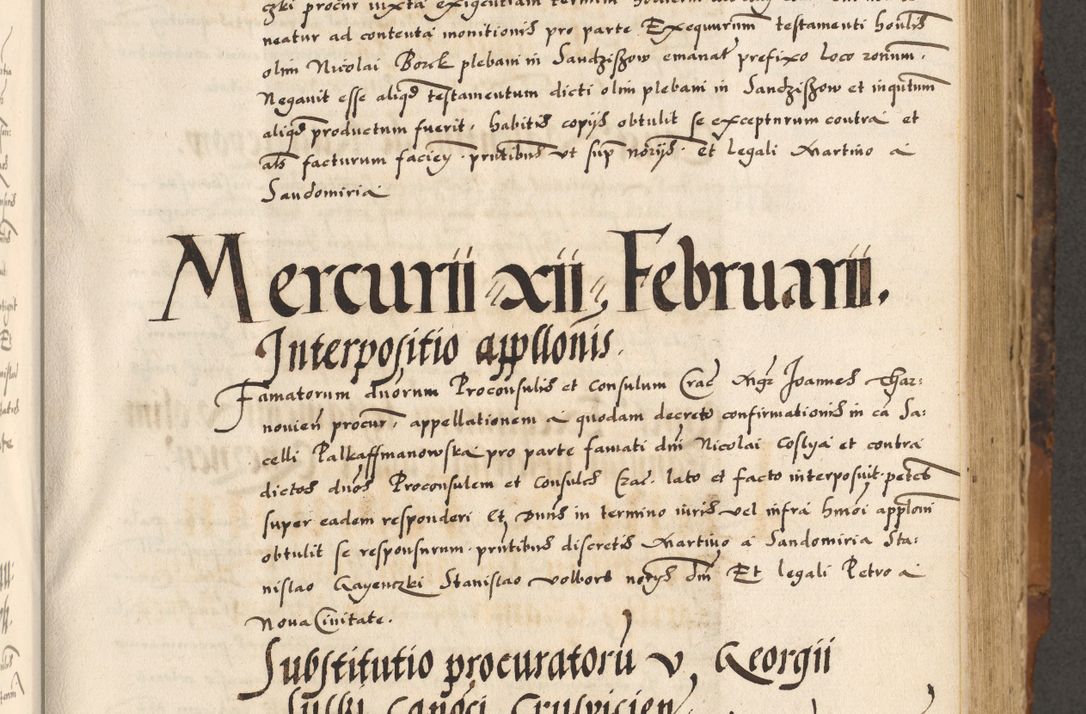 neatur ad contenta monitionis pro parte Exequutorum testamenti honlis
olim Nicolai Borek plebani in Sandzishow emanat prefixo loco ronum.
Negavit esse aliqd testamentum dicti olim plebani in Sandzishow et inqutum
aliqd productum fuerit, habitis copijs obtulit se excepturum contra et
als facturum faciey. pntibus ut sup norijs. Et legali Martino a
Sandomiria
Mercurii xii Februarii.
Interpositio appllonis.
Famatorum duorum Proconsulis et Consulum Crac Mgr Joannes Thar:
novien procur, appellationem a quodam decreto confirmationis in ca Sa:
celli Palkaffmanowska pro parte famati dni Nicolai Coslya et contra
dictos duos Proconsulem et Consules Crac. lato et facto interposuit petes
super eadem responderi Et Duns in termino iuris vel infra hmoi apploni
obtulit se responsurum. pntibus discretis Martino a Sandomiria Sta:
nislao Gayenczki Stanislao Volbors norijs dni Et legali Petro a
Nova Civitate.
Substitutio procuratoru v, Georgii